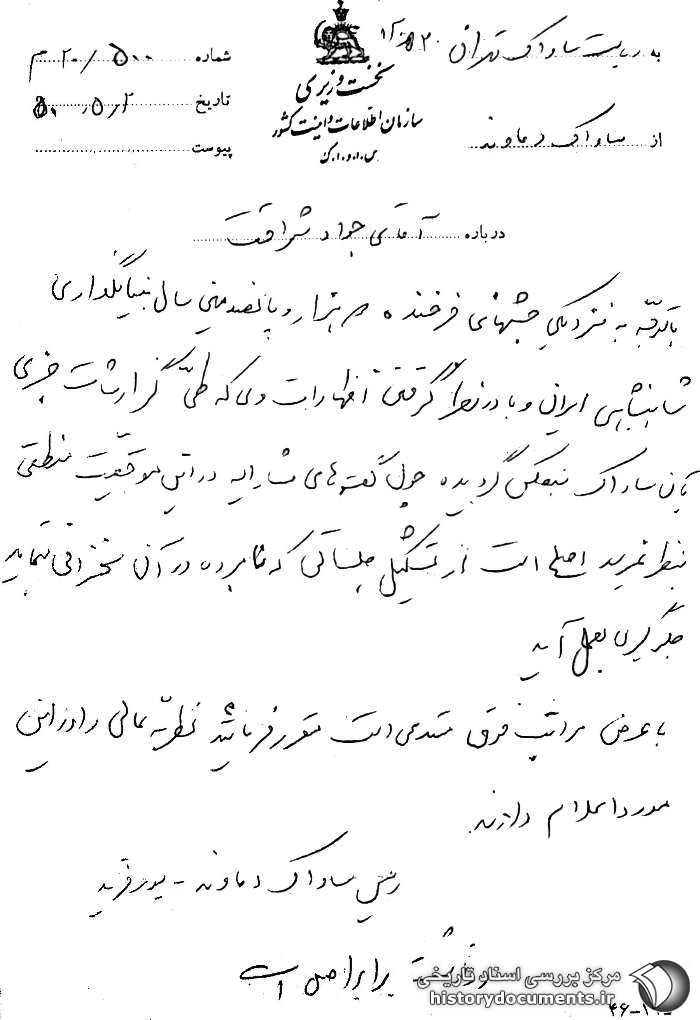 به ریاست ساواک تهران ۲۰ ه ۱۲
نخست وزیری
سازمان اطلاعات و امنیت کشور
س.ا.و.ا.ک
شماره ۵۰۰/۲۰ م
تاریخ ۵۰،۵،۲
پیوست
از ساواک دماوند
درباره آقای جواد شرافت
باتوجه به نزدیکی جشنهای فرخنده دو هزار و پانصدمین سال بنیانگذاری
شاهنشاهی ایران و با در نظر گرفتن اظهارات وی که طی گزارشات خبری
بآن ساواک منعکس گردیده چون گفته‌های مشارالیه در این موقعیت منطقی
بنظر نمیرسد اصلح است از تشکیل جلساتی که نامبرده در آن سخنرانی مینماید
جلوگیری بعمل آید
با عرض مراتب فوق مستدعی است مقرر فرمائید نظریه عالی را در این
مورد اعلام دارند
رئیس ساواک دماوند -
رونوشت برابر اصل است
مرکز بررسی اسناد تاریخی
historydocuments.ir